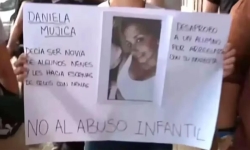 DANIELA
MUJICA
DECÍA SER NOVIA
DE ALGUNOS NENES
LES HACIA ESCENAS
DE CELOS CON NENAS
DESAPROBO
A UN ALUMNO
POR
CON SU
NO AL ABUSO INFANTIL